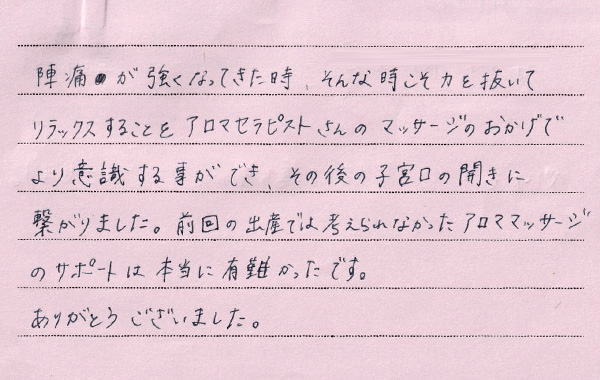 陣痛が強くなってきた時、そんな時こそ力を抜いて
リラックスすることをアロマセラピストさんのマッサージのおかげで
より意識する事ができ、その後の子宮口の開きに
繋がりました。前回の出産では考えられなかったアロママッサージ
のサポートは本当に有難かったです。
ありがとうございました。